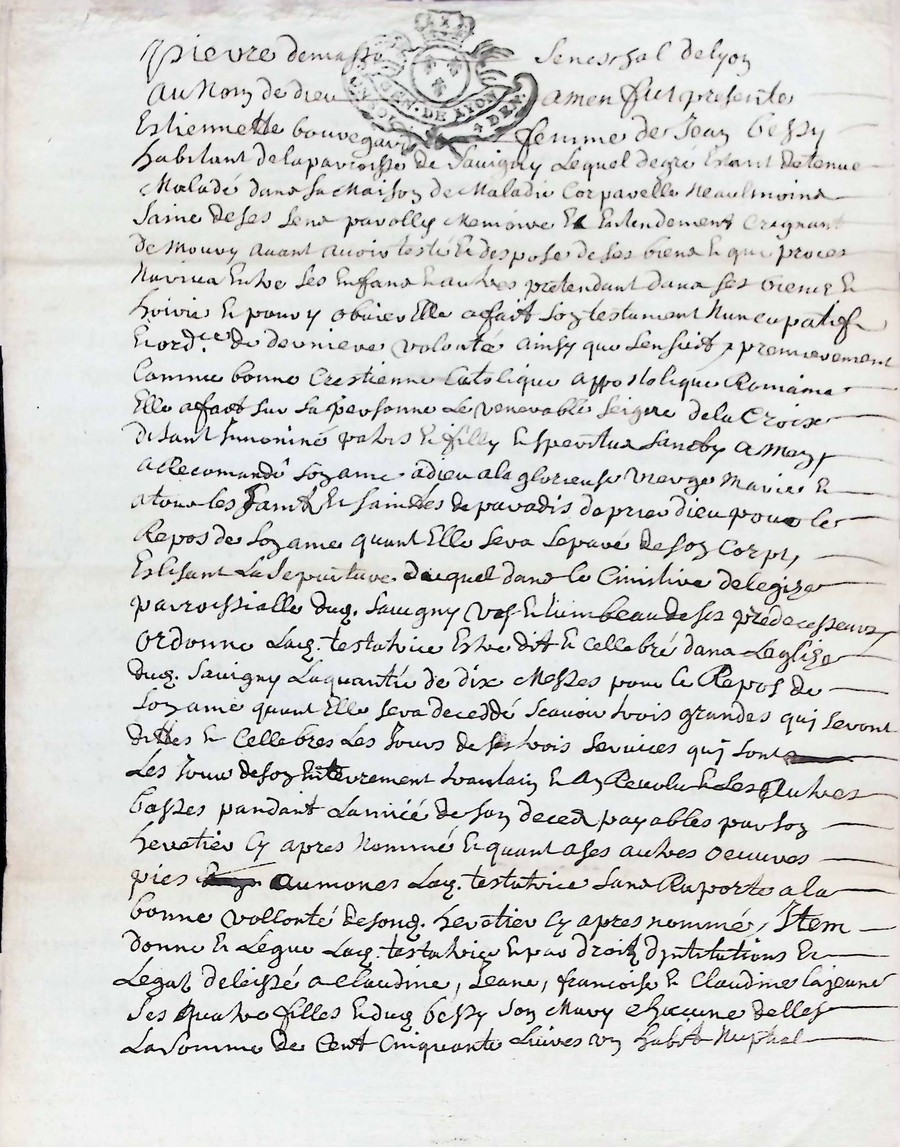 pierre demasso Seneschal de Lyon
GEN. DE LYON
4 DEN.
Au Nom de dieu amen fut presente
Estiennette bouvegard femme de Jean bessy
habitant de la parroisse de Savigny Lequel degré Estant detenue
Maladé dans sa Maison de Maladie Corparelle Neaulmoins
Saine de ses Sens parolly Memoire Et Entendement Creignant
De Moury avant avoir testé Et despose de ses biens Et que proces
Nariva Entre Ses Enfans Et autres pretendant dans ses biens Et
hoirie Et pour y obvier Elle a fait son testament Nuncupatif
Et ord.re de derniere volonté ainsy que sensuit premierement
Comme bonne Crestienne Catolique appostolique Romaine
Elle a fait sur sa personne Le venerable Seigne de la Croix
disant Innominé patris Et filly Et speritus Sancty amen,
a Recomandé son ame a dieu a la glorieuse vierge Marie Et
a tous les saints Et saintes de paradis de prier dieu pour le
Repos de son ame quant Elle sera separé de son Corps,
Eslisant La Sepulture duquel dans le Cimistire de legise
parrossialle dud. Savigny Et tumbeau de ses predecesseurs
ordonne Lad. testatrice Estre dit Et cellebré dans Leglise
dud. Savigny La quantité de dix Messes pour le Repos de
Son ame quant Elle sera deceddé scavoir trois grandes quj seront
dittes Et Cellebres Les Jours de ses trois services quj sont
Les Jour de son Enterrement Et An Revolu Et Les Autres
basses pandant Lannée de son deced payables par son
heretier Cy apres Nommé Et quant a ses autres oeuvres
pies aumones Lad. testatrice sans Raporte a la
bonne vollonté de sond. heretier Cy apres nommé, Item
donne Et Legue Lad. testatrice Et par droit dyntitutions Et
Legat deleissé a Claudine, Jeane, francoise Et Claudine la jeune
Ses quatre filles Et dud. bessy son Mary chacune delles
La Somme de Cent Cinquante Livres un habit Nuptial